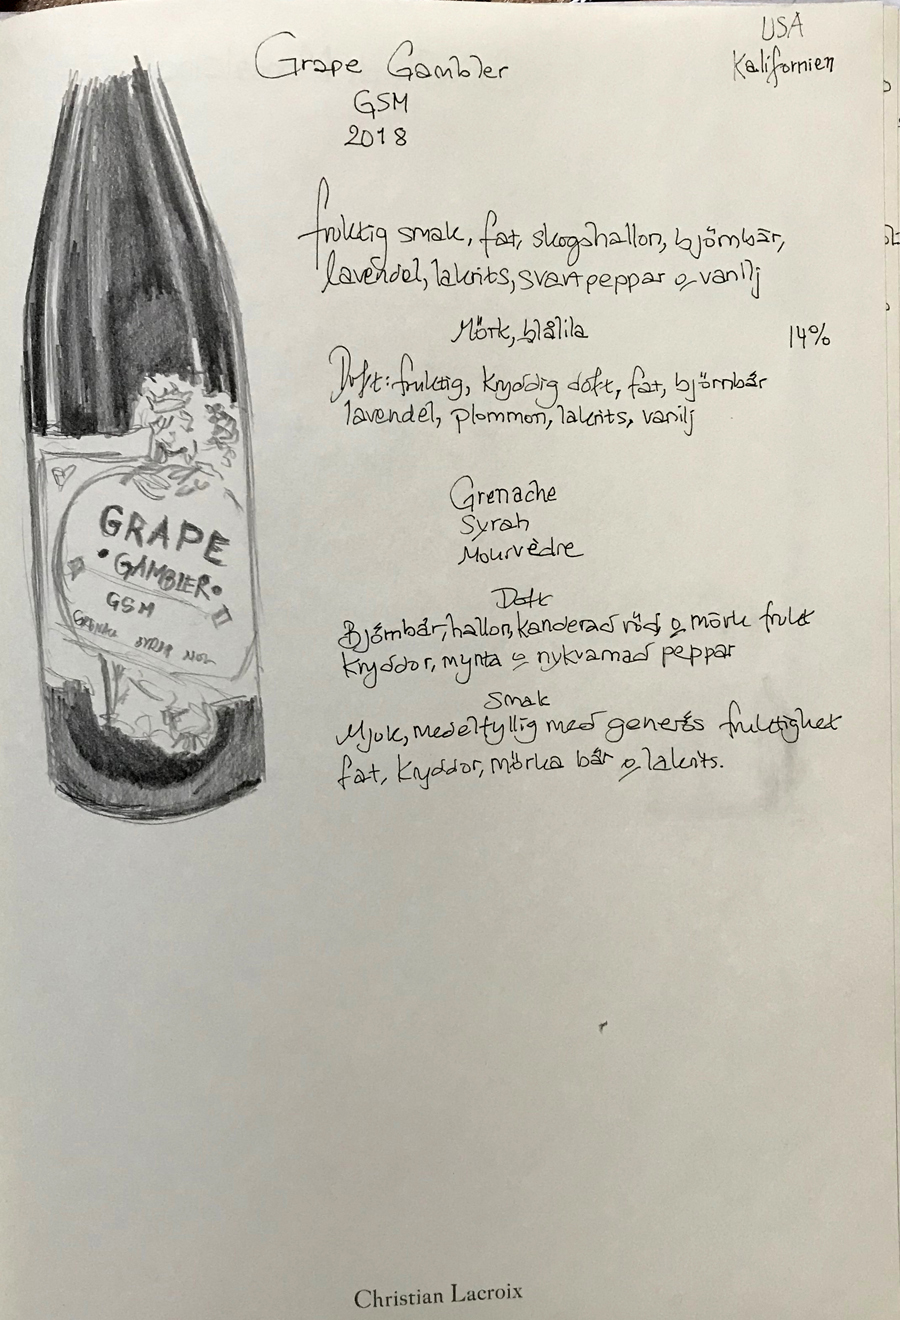 USA
Kalifornien
Grape Gambler
GSM
2018
fruktig smak, fat, skogshallon, björnbär,
lavendel, lakrits, svartpeppar o vanilj
Mörk, blålila
14%
Doft: fruktig, kryddig doft, fat, björnbär
lavendel, plommon, lakrits, vanilj
Grenache
Syrah
Mourvèdre
Doft
Björnbär, hallon, kanderad röd o mörk frukt
kryddor, mynta o nykvarnad peppar
Smak
Mjuk, medelfyllig med generös fruktighet
fat, kryddor, mörka bär o lakrits.
GRAPE
• GAMBLER •
GSM
SYRAH
Christian Lacroix